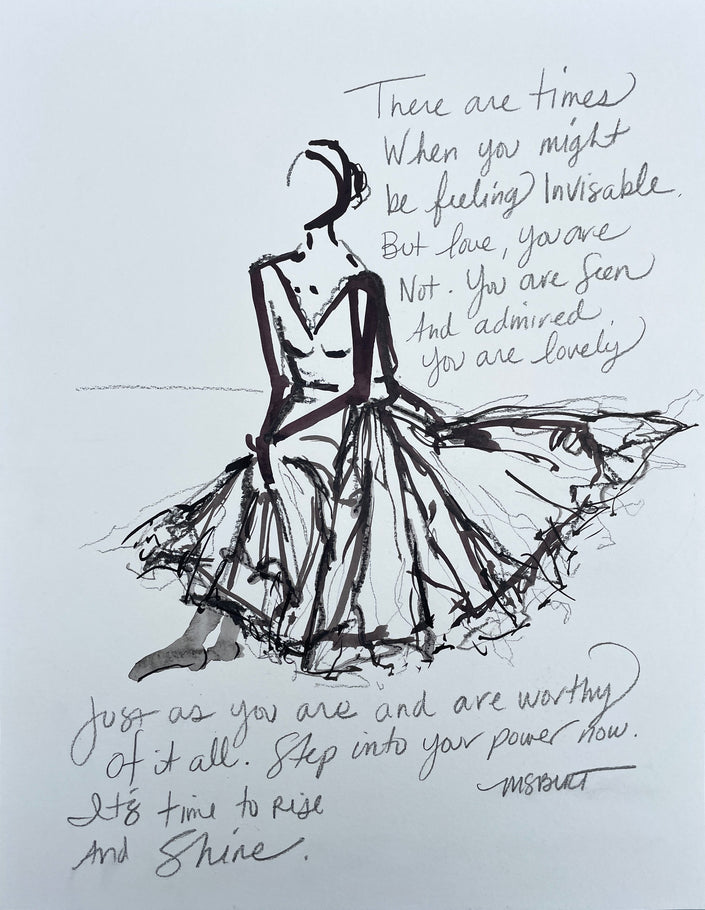 There are times
When you might
be feeling Invisable.
But love, you are
Not. You are Seen
And admired.
You are lovely
Just as you are and are worthy
of it all. Step into your power now.
It's time to Rise
And Shine.
MSBUTT